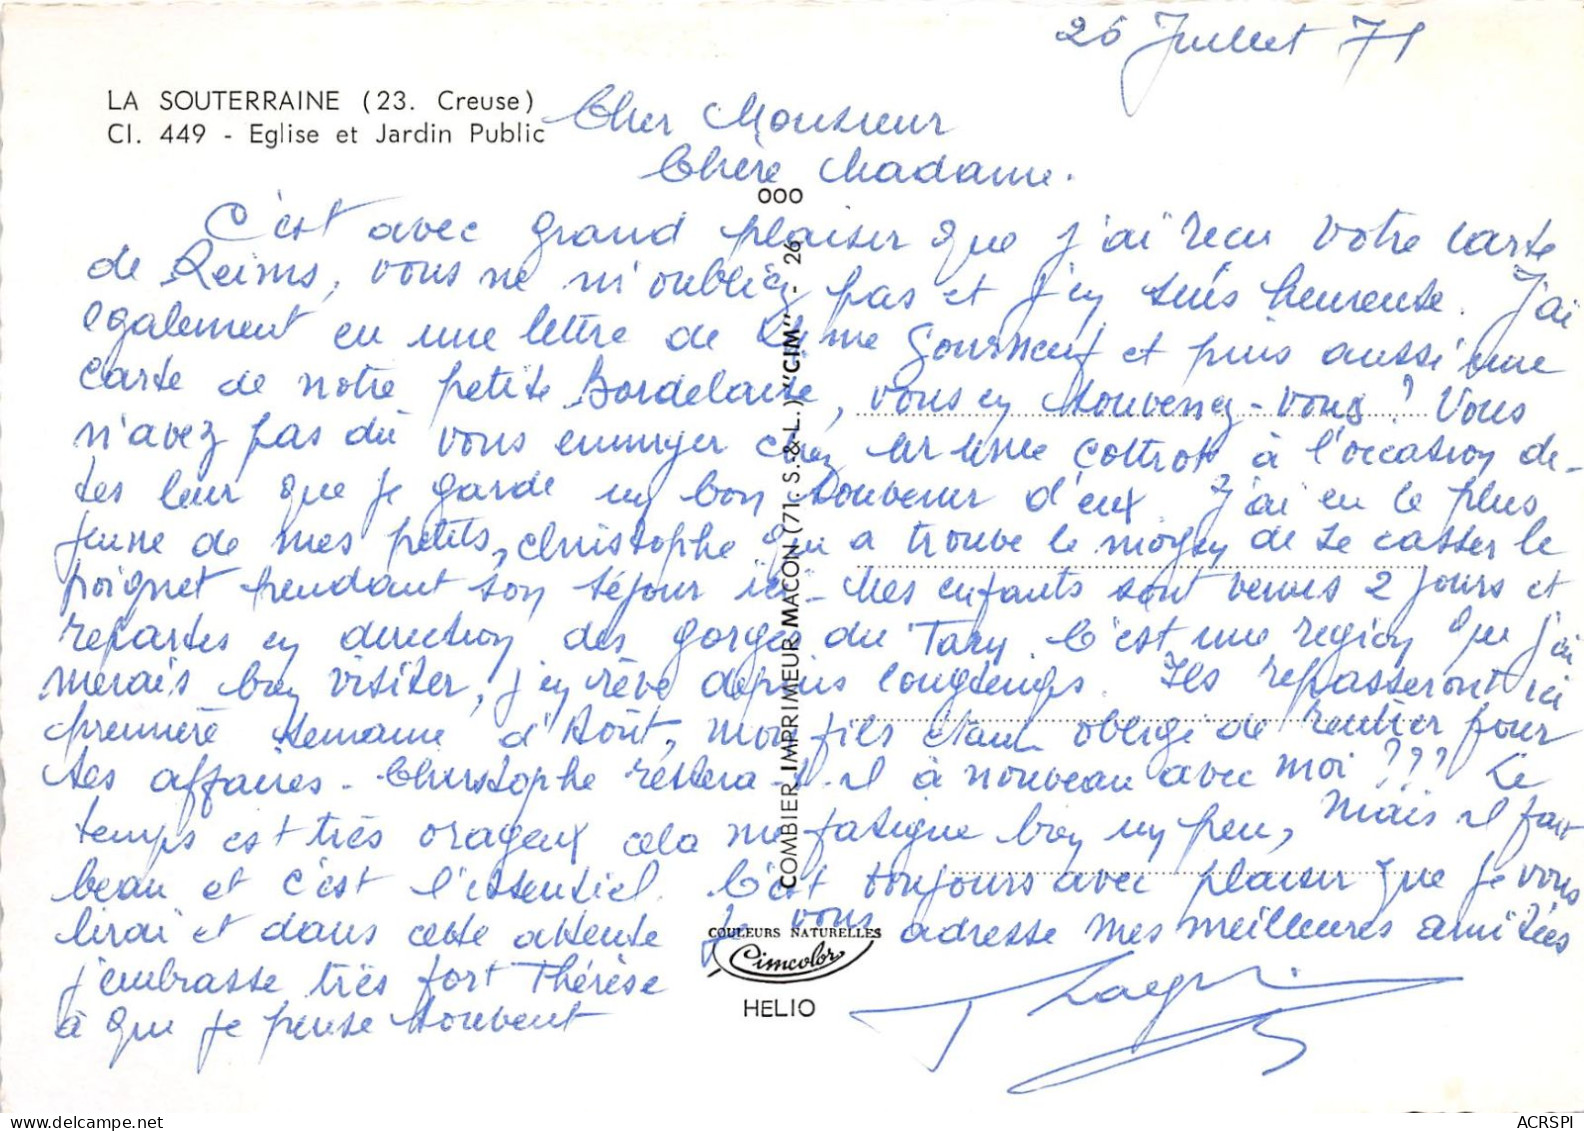 26 Juillet 71
LA SOUTERRAINE (23. Creuse)
Cl. 449 - Eglise et Jardin Public
Cher Monsieur
Chère Madame.
C'est avec grand plaisir que j'ai recu votre carte
de Reims, vous ne m'oubliez pas et j'en suis heureuse. J'ai
egalement eu une lettre de Mme Gourneuf et puis aussi une
carte de notre petite Bordelaise, vous en souvenez-vous? Vous
n'avez pas dû vous ennuyer chez Mr Mme Cottrot, à l'occasion di-
tes leur que je garde un bon souvenir d'eux. J'ai eu le plus
jeune de mes petits, Christophe qui a trouve le moyen de se casser le
poignet pendant son séjour ici - Mes enfants sont venus 2 jours et
repartis en direction des gorges du Tarn. C'est une region que j'ai
merais bien visiter, j'en rêve depuis longtemps. Ils repasseront ici
première semaine d'Août, mon fils étant obligé de rentrer pour
ses affaires - Christophe restera-t-il à nouveau avec moi??? Le
temps est très orageux cela me fatigue bien un peu, mais il fait
beau et c'est l'essentiel. C'est toujours avec plaisir que je vous
lirai et dans cette attente je vous adresse mes meilleures amitiés
j'embrasse très fort Thérèse
à qui je pense souvent
OOO
COMBIER IMPRIMEUR MACON (71. S.-&-L.) "CIM" - 26
COULEURS NATURELLES
Cimcolor
HELIO
ACRSPI